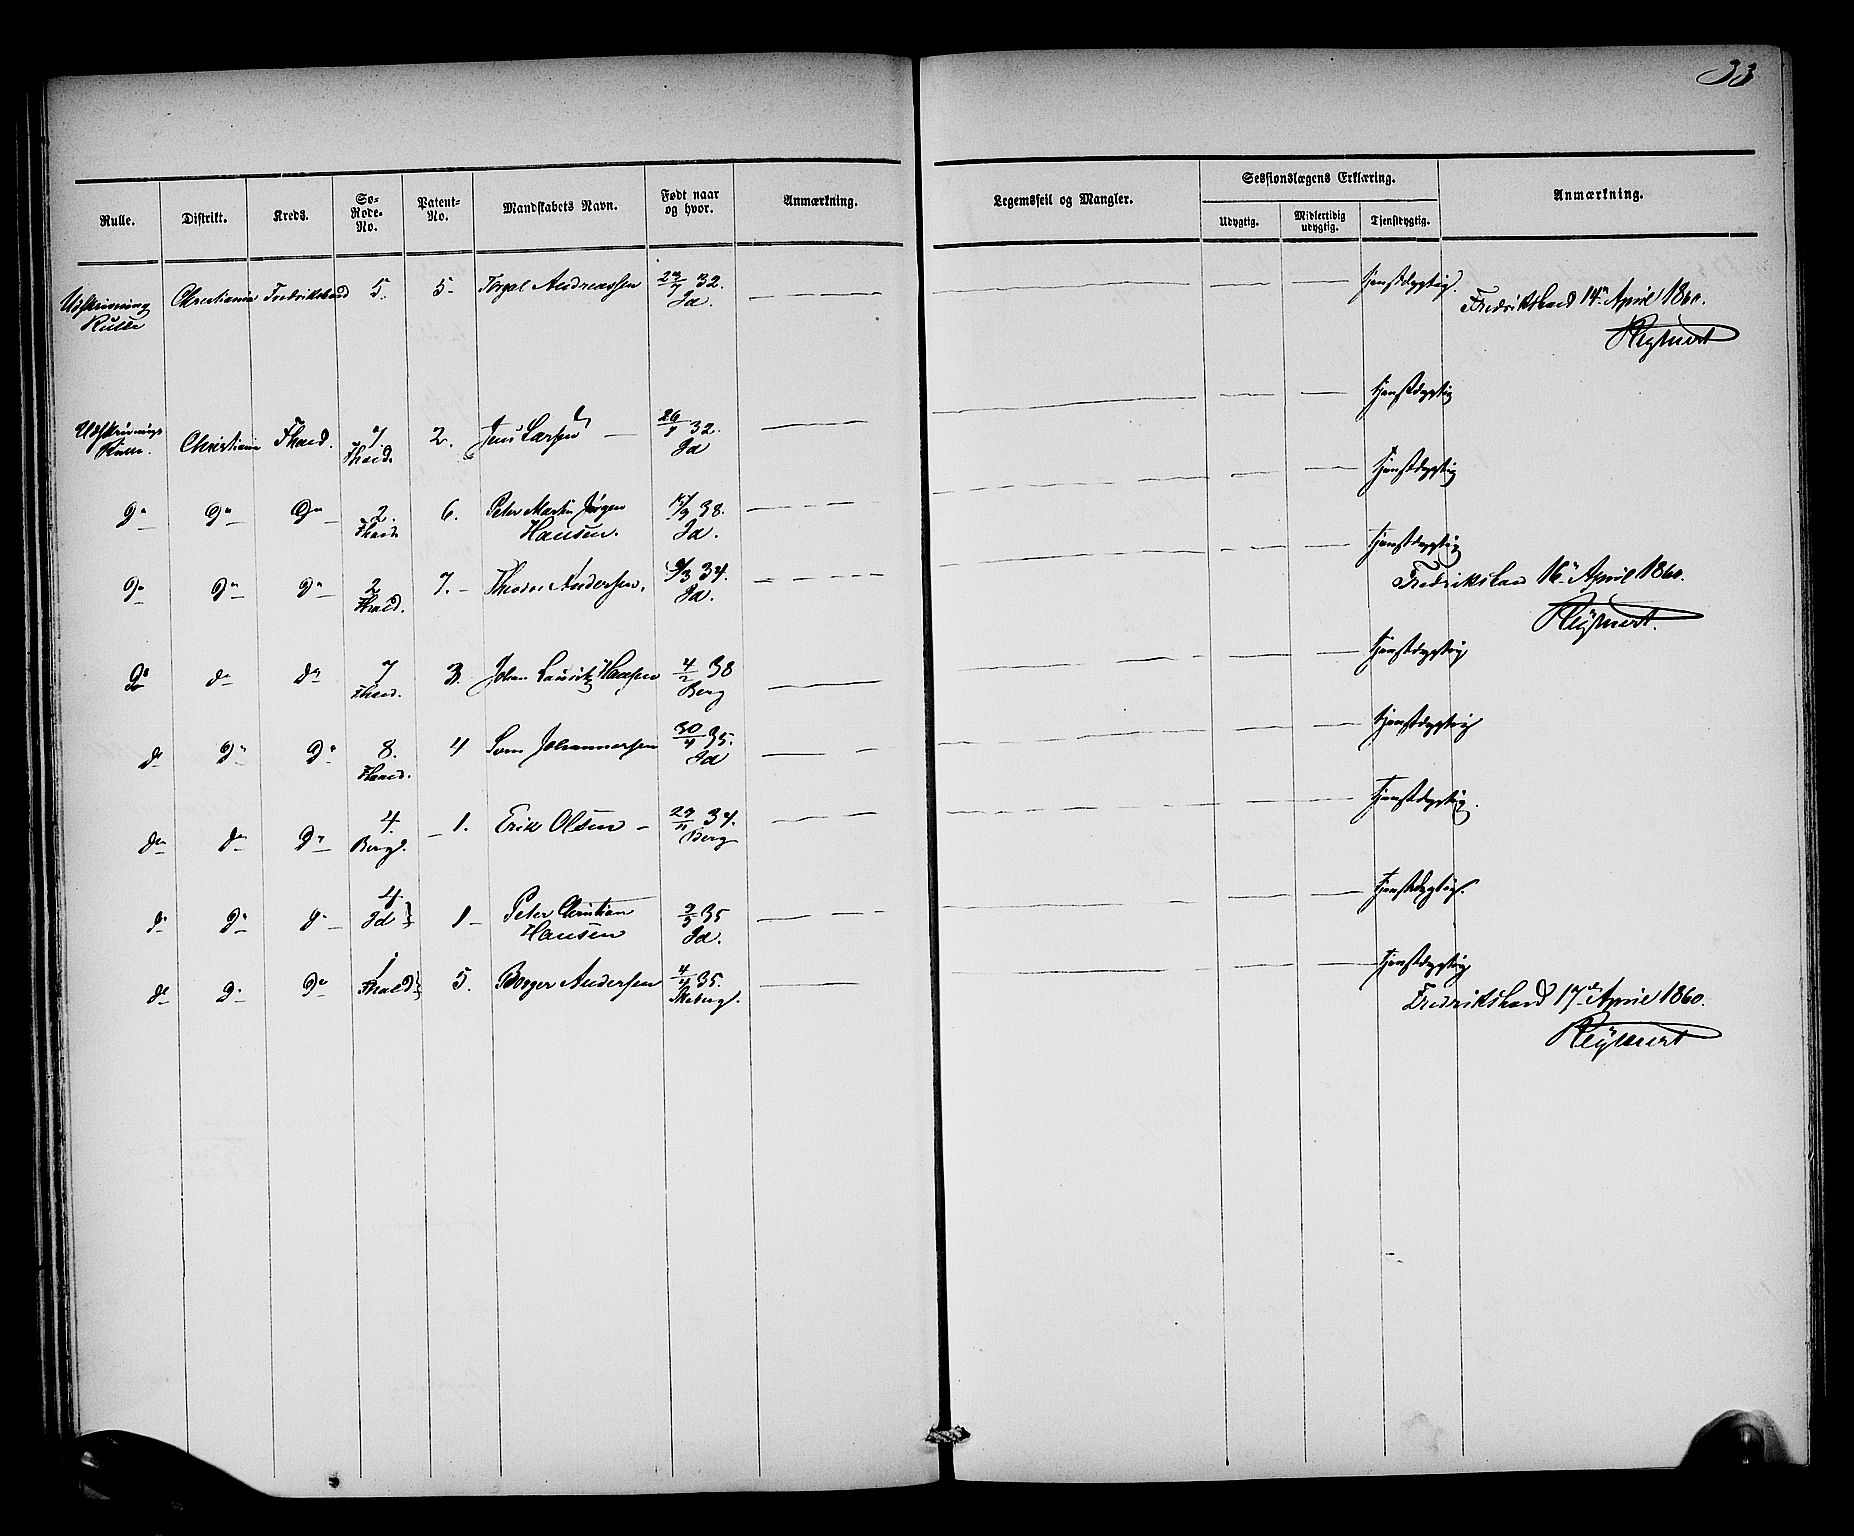 33
Rulle. Distrikt. Kreds. Sø-Rode-No. Patent-No. Mandskabets Navn. Født naar og hvor. Anmærkning. Legemsfeil og Mangler. Sessionslægens Erklæring. Anmærkning.
Udygtig. Midlertidig udygtig. Tjenstdygtig.
Udskrivning Christiania Fredrikshald 5. 5 Andreassen 32. tjenstdygtig.
Rulle Id.
Fredrikshald 14de April 1860.
Udskrivnings Christiania Fhald. 2. Jens Larsen 26/8 32. tjenstdygtig
Rulle. Fhald. Id
do do do 2. 6. Peter Martin Jørgen 38. tjenstdygtig
Fhald. Hansen. Id.
do do do 2 7. Andersen. 34. tjenstdygtig
Fhald. Id.
Fredrikshald 16de April 1860.
do do do 7 3. Johan Lauritz Hansen 4/2 38 tjenstdygtig
Fhald. Berg
do do do 8. 4 Johannessen 30/4 35. tjenstdygtig
Fhald. Id
do do do 4. 1. Erik Olsen 29/11 34. tjenstdygtig.
Berg. Berg
do do do 4 1 Peter Christian 35 tjenstdygtig.
Id Hansen Id.
do do do 1 5. Borger Andersen 4/4 35. tjenstdygtig
Fhald Skeberg.
Fredrikshald 17de April 1860.